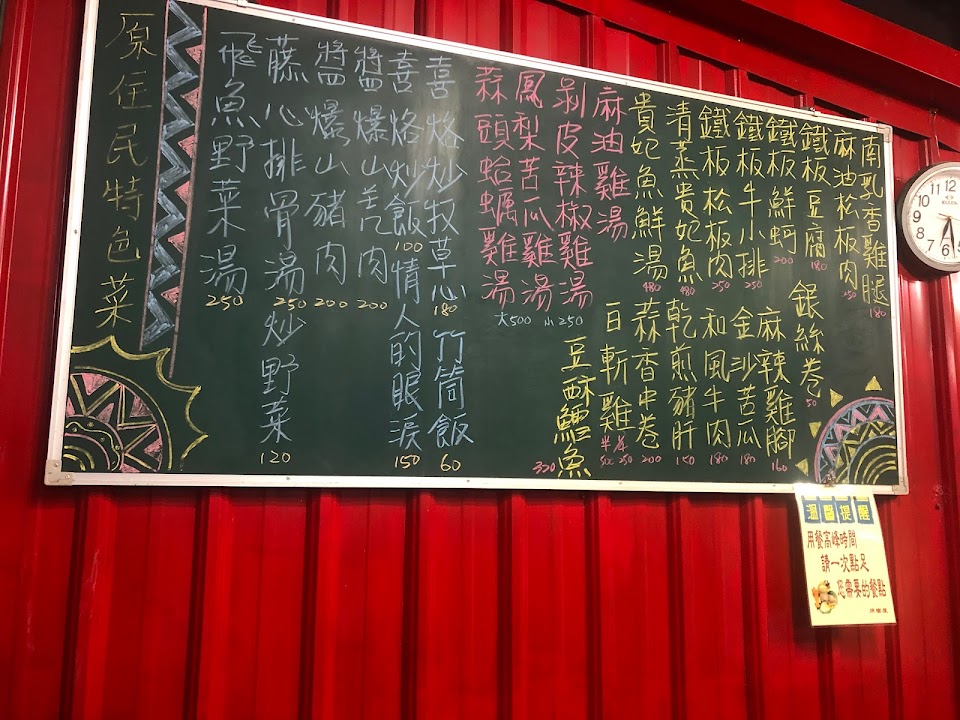 南乳香雞腿 180
麻油松板肉 250
鐵板豆腐 180
銀絲卷 50
鐵板鮮蚵 200
麻辣雞腳 160
鐵板牛小排 250
金沙苦瓜 180
鐵板松板肉 250
和風牛肉 180
清蒸貴妃魚 480
乾煎豬肝 150
貴妃魚鮮湯 480
蒜香中卷 200
麻油雞湯
白斬雞
剝皮辣椒雞湯
鳳梨苦瓜雞湯
蒜頭蛤蠣雞湯
大500 小250
豆酥鱈魚 320
喜烙炒牧草心 180
竹筒飯 60
喜烙炒飯 100
情人的眼淚 150
醬爆山羌肉 200
醬爆山豬肉 200
藤心排骨湯 250
炒野菜 120
飛魚野菜湯 250
原住民特色菜
溫馨提醒
用餐高峰時間
請一次點足
您需要的餐點